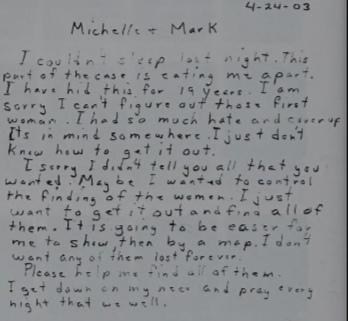 4-24-03
Michelle + Mark
I couldn't sleep last night. This
part of the case is eating me apart.
I have hid this for 19 years. I am
sorry I can't figure out those first
woman. I had so much hate and coverup
Its in mind somewhere. I just don't
know how to get it out.
I sorry I didn't tell you all that you
wanted. May be I wanted to control
the finding of the women. I just
want to get it out and find all of
them. It is going to be easer for
me to show then by a map. I don't
want any of them lost forever.
Please help me find all of them.
I get down on my neer and pray every
night that we well.